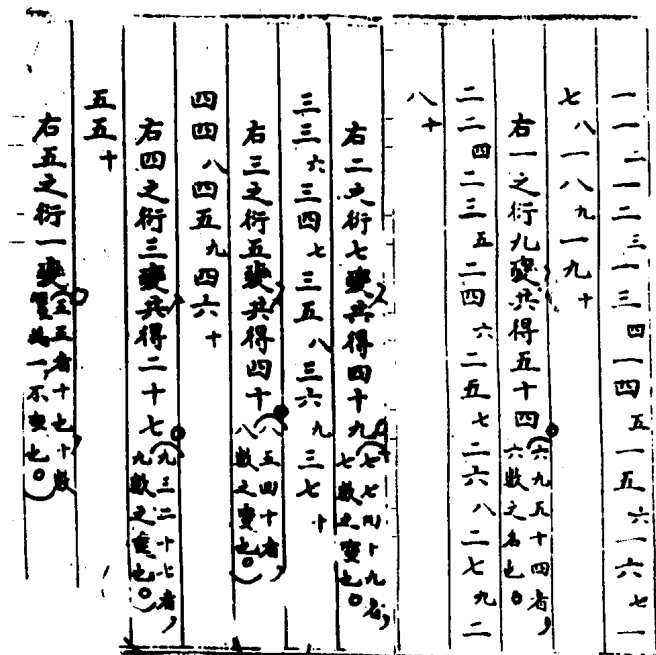 一一二一二三一三四一四五一五六一六七一
七八一八九一九十
右一之衍九變共得五十四六九五十四者，六數之名也。
二二四二三五二四六二五七二六八二七九二
八十
右二之衍七變共得四十九七七四十九者，七數之變也。
三三六三四七三五八三六九三七十
右三之衍五變共得四十八五四十者八數之變也。
四四八四五九四六十
右四之衍三變共得二十七九三二十七者，九數之變也。
五五十
右五之衍一變五五者十也，十數一不變也。